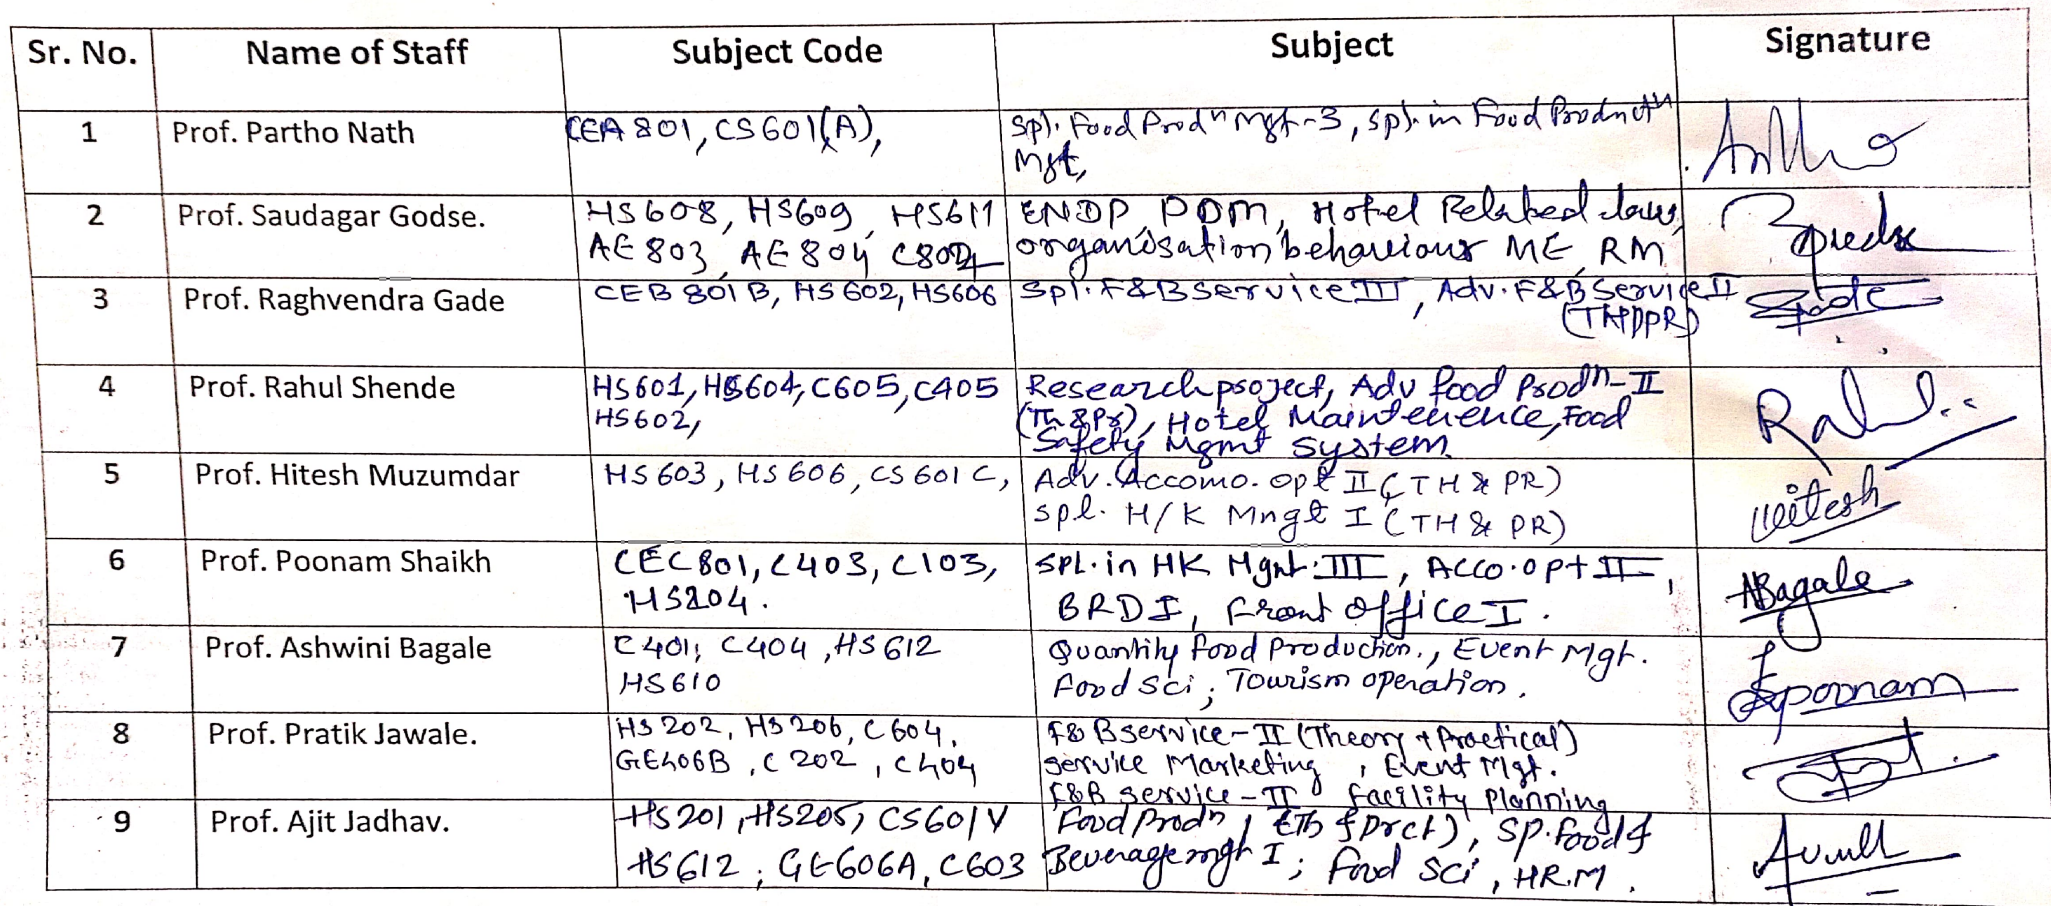 Sr. No. Name of Staff Subject Code Subject Signature
1 Prof. Partho Nath CEA 801, CS 601(A), Spl. Food Prodⁿ Mgt-3, Spl. in Food Productⁿ
Mgt,
2 Prof. Saudagar Godse. HS608, HS609, HS611 ENDP, PDM, Hotel Related laws,
AE 803, AE 804 C802 organisation behaviour ME, RM
3 Prof. Raghvendra Gade CEB 801 B, HS 602, HS606 Spl. F&B Service III, Adv. F&B Service II
(TH&PR)
4 Prof. Rahul Shende HS601, HS604, C605, C405 Research project, Adv food Prodⁿ-II
HS602, (Th & Pr), Hotel Maintenence, Food
Safety Mgmt System.
5 Prof. Hitesh Muzumdar HS 603, HS 606, CS 601 C, Adv. Accomo. opt II (TH & PR) Hitesh
Spl. H/K Mngt I (TH & PR)
6 Prof. Poonam Shaikh CEC 801, C403, C103, SPL. in HK Mgnt. III, Acco. opt II, ABagale
HS204. BRD I, Front office I.
7 Prof. Ashwini Bagale C401, C404, HS612 Quantity food Production., Event Mgt. poonam
HS610 Food Sci, Tourism operation.
8 Prof. Pratik Jawale. HS 202, HS 206, C 604, F&B service-II (Theory + Practical)
GE406B, C 202, C404 service Marketing, Event Mgt.
F&B service-II facility planning
9 Prof. Ajit Jadhav. HS 201, HS205, CS601 Food Prodⁿ, (Th & Prct), SP. food &
HS612, GE606A, C603 Beverage mgt I; food Sci, HR.M.